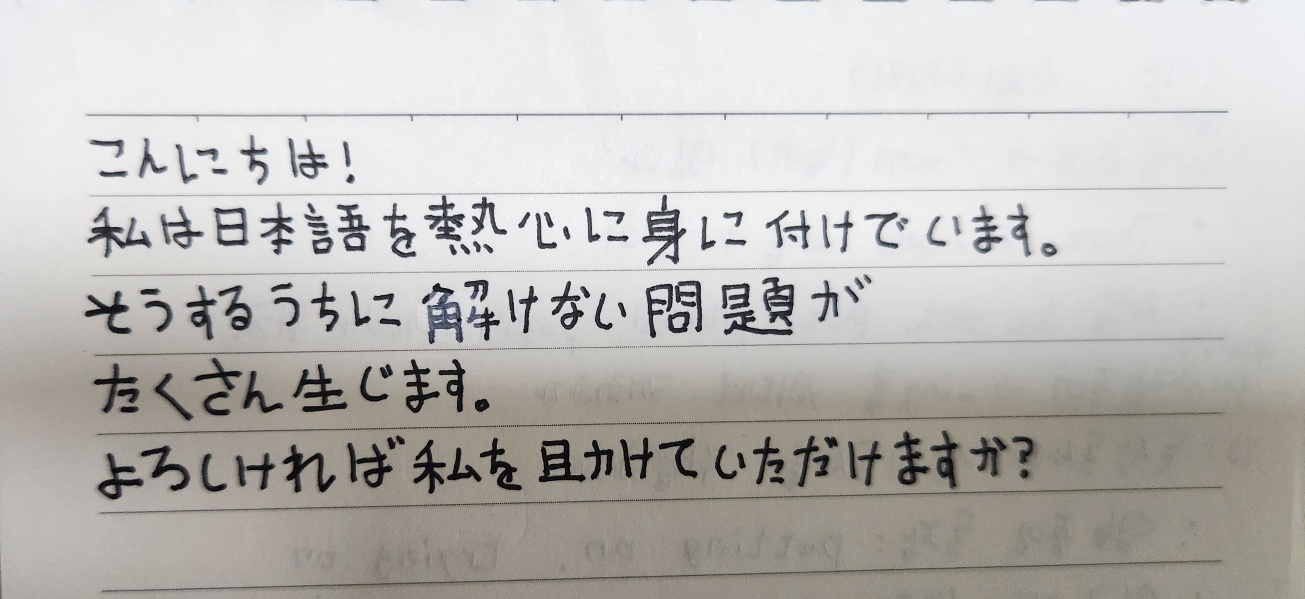 こんにちは!
私は日本語を熱心に身に付けでいます。
そうするうちに解けない問題が
たくさん生じます。
よろしければ私を助けていただけますか?